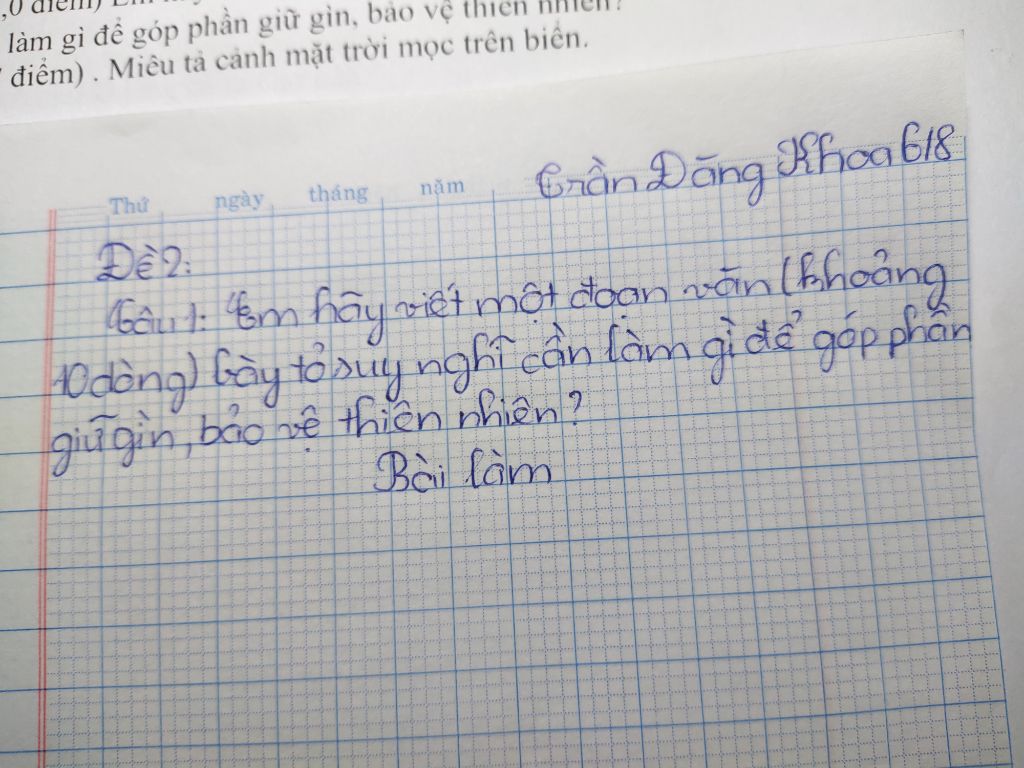 ,0 điểm) Em
làm gì để góp phần giữ gìn, bảo vệ thiên nhiên?
điểm) . Miêu tả cảnh mặt trời mọc trên biển.
Trần Đăng Khoa 618
Thứ ngày tháng năm
Đề 2:
Câu 1: Em hãy viết một đoạn văn (khoảng
10 dòng) bày tỏ suy nghĩ cần làm gì để góp phần
giữ gìn, bảo vệ thiên nhiên?
Bài làm